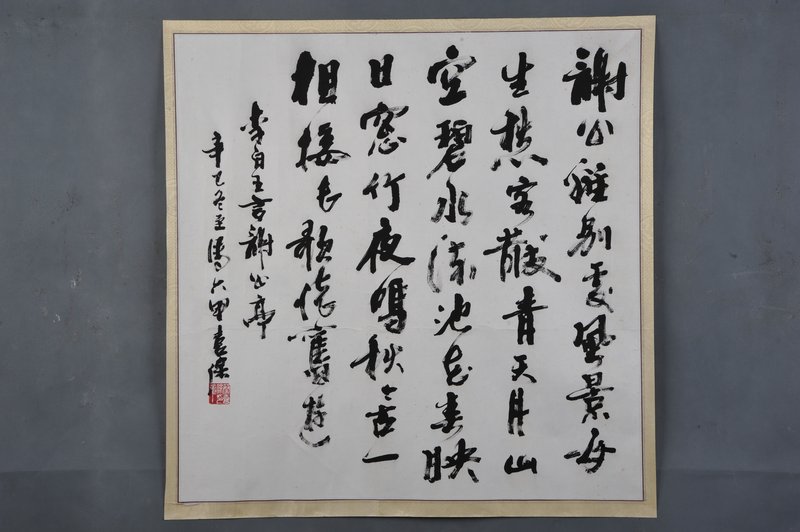 謝公離別處風景每
生愁客散青天月山
空碧水流池花春映
日窗竹夜鳴秋今古一
相接長歌懷舊遊
李白五言謝公亭
辛巳冬至潘六甲書